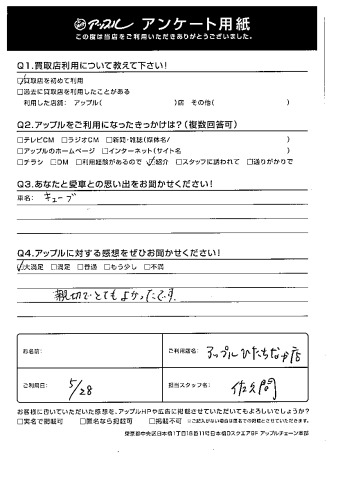 アップル アンケート用紙
この度は当店をご利用いただきありがとうございました。
Q1.買取店利用について教えて下さい!
☑買取店を初めて利用
□過去に買取店を利用したことがある
利用した店舗: アップル( )店 その他( )
Q2.アップルをご利用になったきっかけは?(複数回答可)
□テレビCM □ラジオCM □新聞・雑誌(媒体名/ )
□アップルのホームページ □インターネット(サイト名 )
□チラシ □DM □利用経験があるので ☑紹介 □スタッフに誘われて □通りがかりで
Q3.あなたと愛車との思い出をお聞かせください!
車名: キューブ
Q4.アップルに対する感想をぜひお聞かせください!
☑大満足 □満足 □普通 □もう少し □不満
親切でとてもよかったです。
お名前:
ご利用店名: アップルひたちなか店
ご利用日: 5/28
担当スタッフ名: 佐久間
お客様に書いていただいた感想を、アップルHPや広告に掲載させていただいてもよろしいでしょうか?
□実名で掲載可 □匿名なら掲載可 □掲載不可 ※ご記入がない場合は匿名での掲載とさせていただきます。
東京都中央区日本橋1丁目18番11号日本橋DスクエアBF アップルチェーン本部